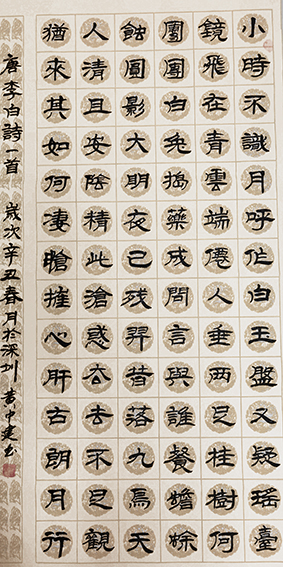 小時不識月呼作白玉盤又疑瑶臺
鏡飛在青雲端僊人垂兩足桂樹何
團團白兔搗藥成問言與誰餐蟾蜍
蝕圓影大明夜已残羿昔落九烏天
人清且安陰精此淪惑去去不足觀
來其如何凄愴摧心肝古朗月行
唐李白詩一首 歲次辛丑春月於深圳 黄中建书